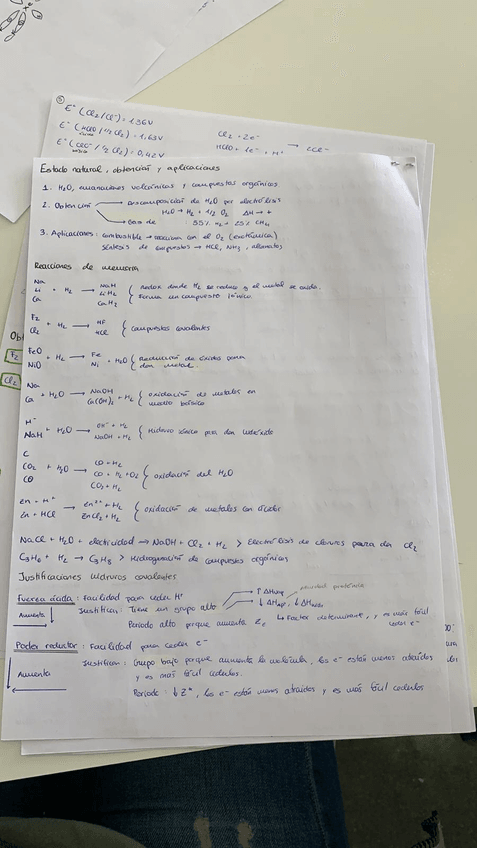 E° (Cl2/Cl-) = 1,36V
E° (HClO/1/2 Cl2) = 1,63V
E° (ClO-/1/2 Cl2) = 0,42V
Cl2 + 2e-
HClO + 1e- + H+ → 2Cl-
Estado natural, obtención y aplicaciones
1. H2O, emanaciones volcánicas y compuestos orgánicos.
2. Obtención → Descomposición de H2O por electrólisis
H2O → H2 + 1/2 O2 ΔH → +
→ Gas de : 55% H2 + 25% CH4
3. Aplicaciones: combustible → reacciona con el O2 (exotérmica)
Síntesis de compuestos → HCl, NH3,
Reacciones de memoria
Na
Li + H2 → NaH LiH CaH2 { Redox donde H2 se reduce y el metal se oxida.
Ca Forma un compuesto iónico
F2
Cl2 + H2 → HF HCl { Compuestos covalentes
FeO
NiO + H2 → Fe Ni + H2O { Reducción de óxidos para dar metal.
Na
Ca + H2O → NaOH Ca(OH)2 + H2 { oxidación de metales en medio básico
H-
NaH + H2O → OH- + H2 NaOH + H2 { Hidruro iónico para dar
C
CO2 + H2O → CO + H2 CO + H2 + O2 CO2 + H2 { oxidación del H2O
CO
Zn + H+
Zn + HCl → Zn2+ + H2 ZnCl2 + H2 { oxidación de metales con ácidos
NaCl + H2O + electricidad → NaOH + Cl2 + H2 > Electrólisis de cloruros para dar Cl2
C3H6 + H2 → C3H8 > Hidrogenación de compuestos orgánicos
Justificaciones hidruros covalentes
Fuerza ácida: Facilidad para ceder H+
Aumenta
Justifican: Tiene un grupo alto → ↑ ΔHhid
→ ↓ ΔHAP, ↓ ΔHdisoc
afinidad protónica
Periodo alto porque aumenta Ze ↳ Factor determinante, y es más fácil ceder e-
Poder reductor: Facilidad para ceder e-
Aumenta
Justifican: Grupo bajo porque aumenta la molécula, los e- están menos atraídos
y es más fácil cederlos.
Periodo: ↓ Z*, los e- están menos atraídos y es más fácil cederlos
Ob
F2
Cl2